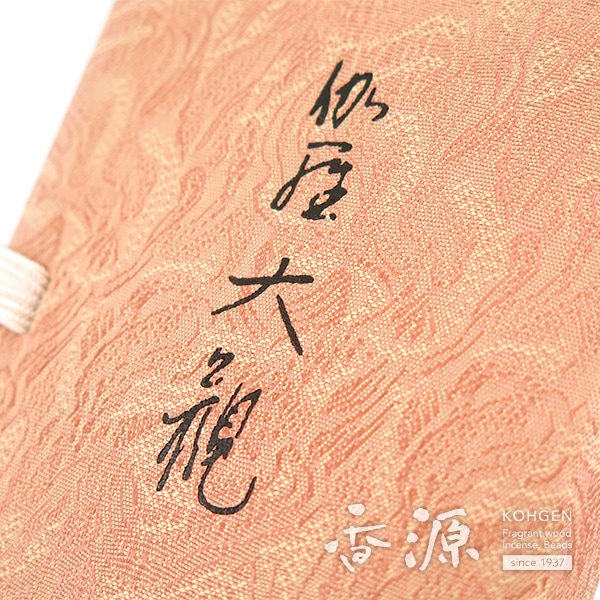 伽羅大観
香源
KOHGEN
Fragrant wood
Incense, Beads
since 1937